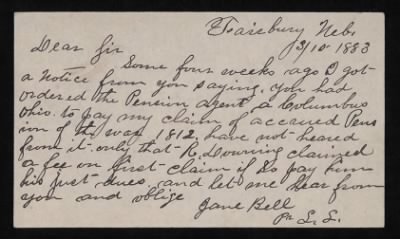 Fairbury Neb.
3/10 1883
Dear Sir
Some four weeks ago I got
a notice from you saying, you had
ordered the Pension Agent, a Columbus
Ohio. to pay my claim of accrued Pens
ion of the war 1812, have not heard
from it. only that R. Downing claimed
a fee on first claim if so pay him
his just dues. and let me hear from
you and oblige
Jane Bell